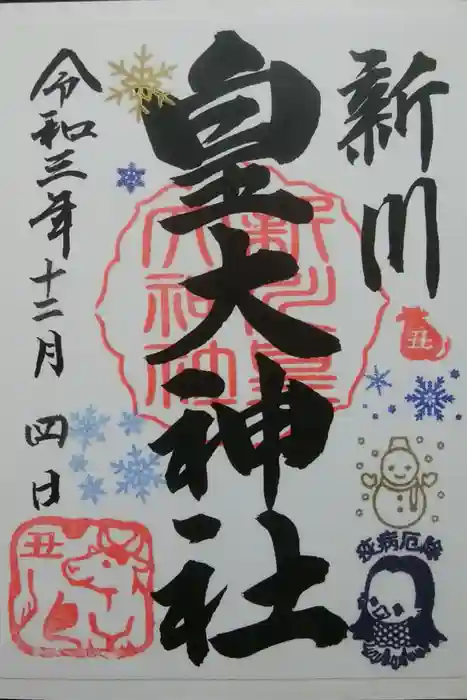 新川
皇大神社
令和三年十二月 四日
丑
丑
疫病厄除
新川皇大神社